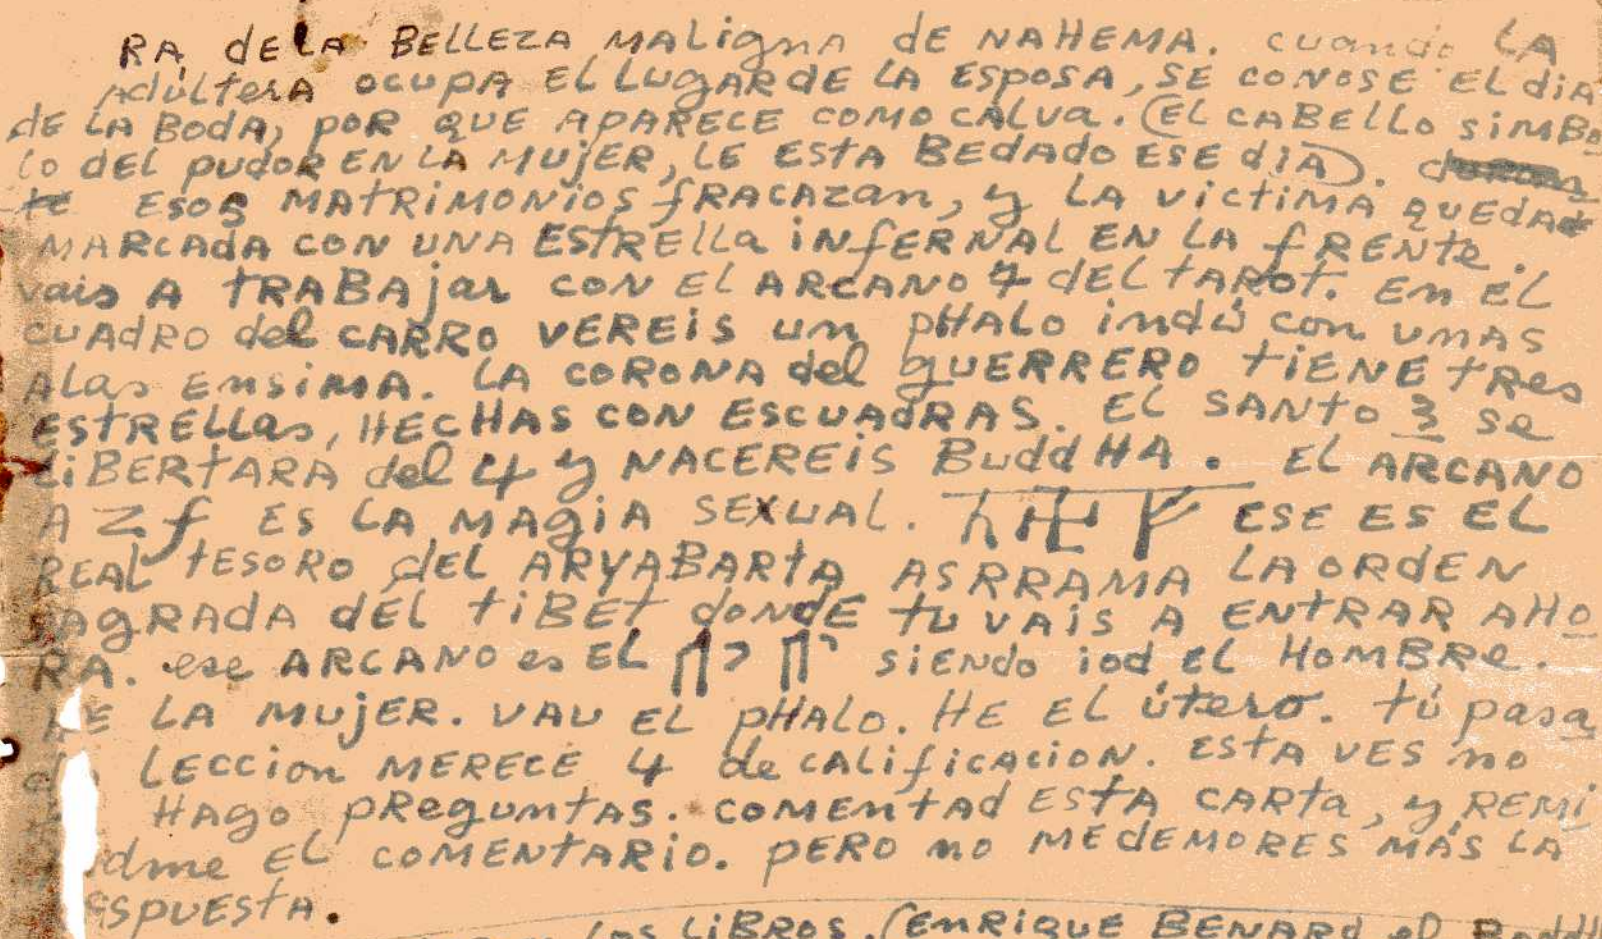 RA DE LA BELLEZA MALigna dE NAHEMA. cuando LA
Adúltera OCUPA EL LUgAR dE LA ESPOSA, SE CONOSE EL diA
dE LA BODA, POR QUE APARECE COMO CALVa. (EL CABELLO SIMBO
LO DEL pudOR EN LA MUjER, LE EStA BEDADO ESE diA).
ESOS MAtRIMONIOS fRACAzan, y LA VictiMA QUEDA
MARCAdA CON UNA EStRElla iNfERNAL EN LA fRENte.
vais A tRABAjar CON EL ARCANO 7 dEL tAROt. En EL
CUAdRO del CARRO VEREiS un pHALO indú con UNAS
ALas Ensima. LA CORONA del gUERRERO tiENE tRes
EStRELLas, HECHAS CON ESCUAdRAS. EL SANtO 3 Se
LiBERtARÁ del 4 y NACEREiS BuddHA. EL ARCANO
A Z f ES LA MAgiA SEXUAL. ESE ES EL
REAL tESORO dEL ARYABARtA ASRRAMA LA ORdEN
SAgRADA DEL tiBEt donDE tu VAiS A ENtRAR AHO
RA. ese ARCANO es EL הוהי siENdo iod EL HOMBRe.
HE LA MUjER. VAU EL pHALO. HE EL útero. tú pasa
LECCion MERECE 4 de CALificAcioN. EStA VES no
HAgO pReguntAS. COMENtAd EStA CARta, y REMi
dme EL COMENtARiO. PERO no MEDEMORES MÁS LA
ESPUEStA.
LOS LiBROS. (ENRiQUE BENARd el